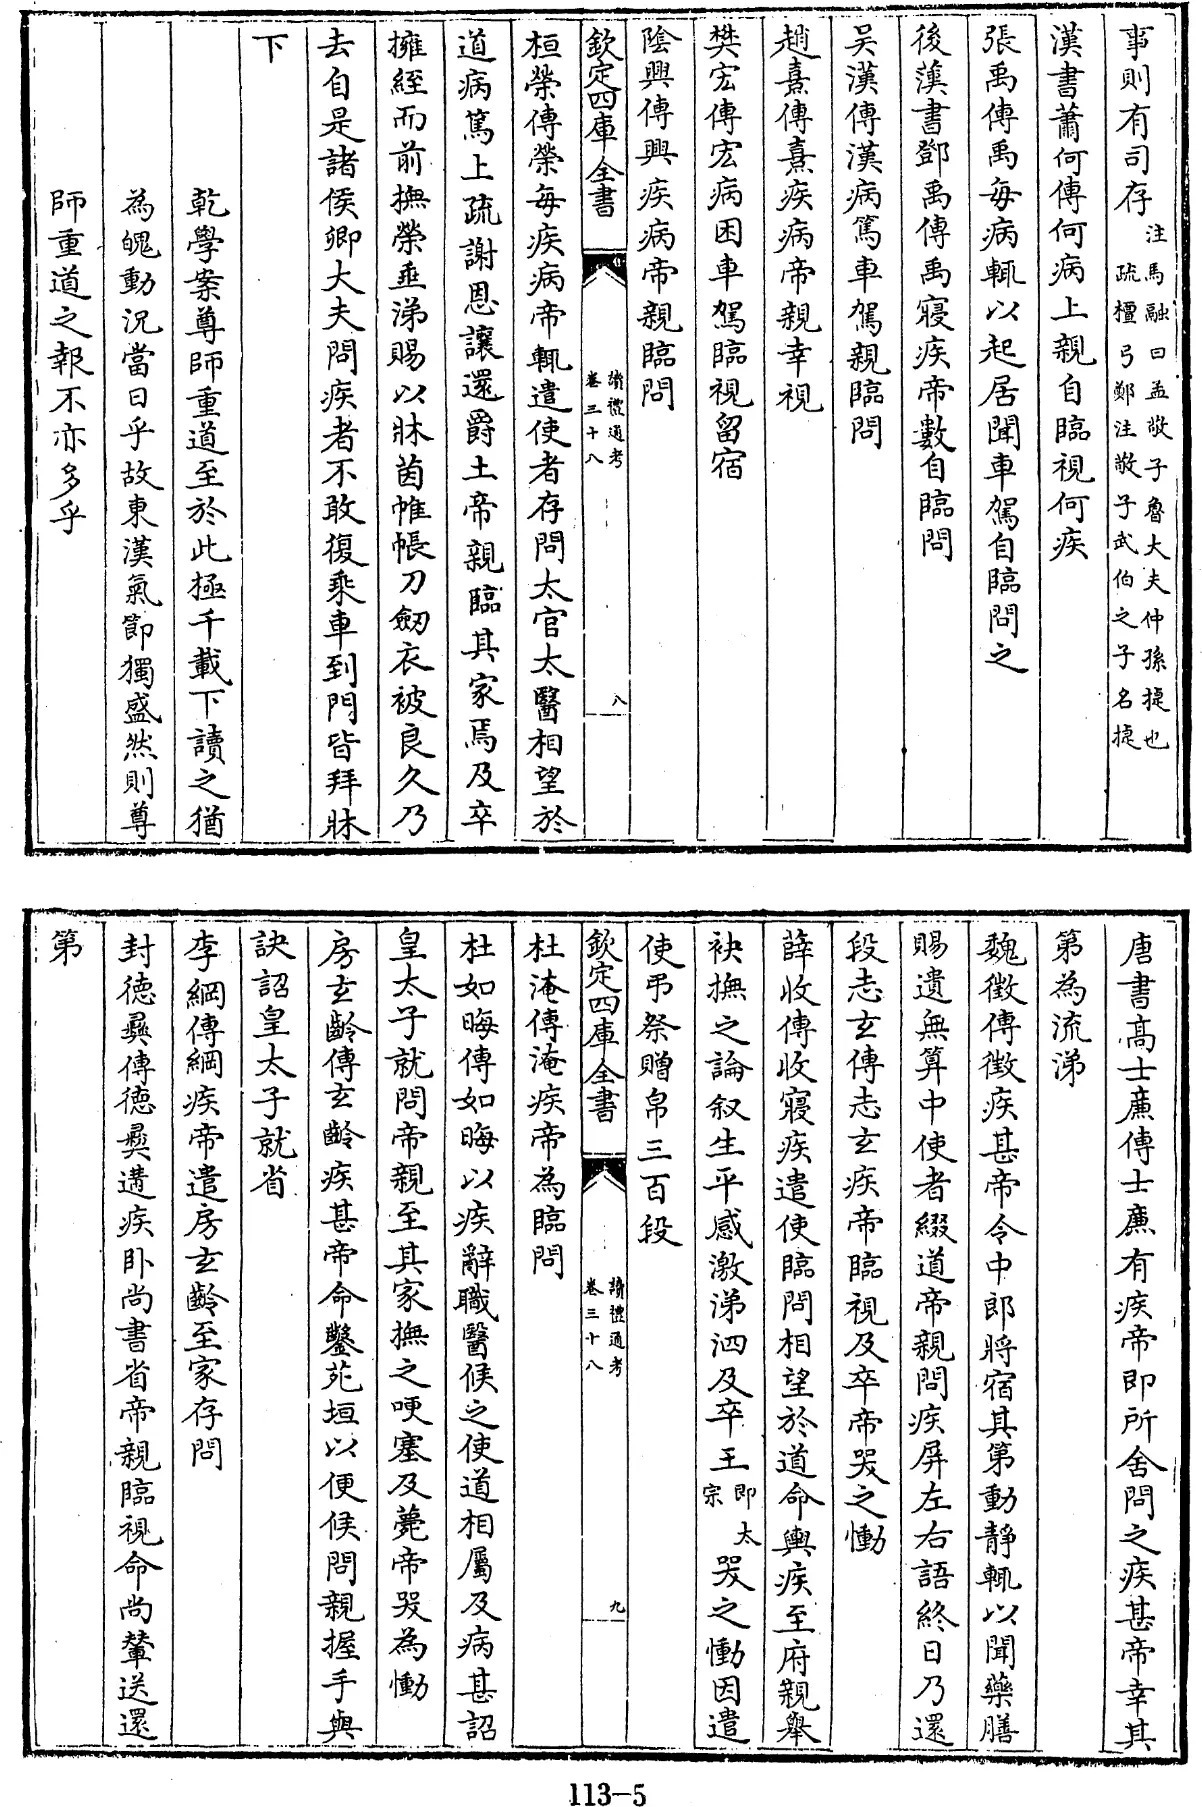 事則有司存注馬融曰孟敬子魯大夫仲孫捷也疏檀弓鄭注敬子武伯之子名捷
漢書蕭何傳何病上親自臨視何疾
張禹傳禹每病輒以起居聞車駕自臨問之
後漢書鄧禹傳禹寢疾帝數自臨問
吳漢傳漢病篤車駕親臨問
趙憙傳憙疾病帝親幸視
樊宏傳宏病困車駕臨視留宿
陰興傳興疾病帝親臨問
欽定四庫全書 讀禮通考卷三十八 八
桓榮傳榮每疾病帝輒遣使者存問太官太醫相望於
道病篤上疏謝恩讓還爵土帝親臨其家焉及卒
擁經而前撫榮垂涕賜以牀茵帷帳刀劒衣被良久乃
去自是諸侯卿大夫問疾者不敢復乘車到門皆拜牀
下
乾學案尊師重道至於此極千載下讀之猶
為魄動況當日乎故東漢氣節獨盛然則尊
師重道之報不亦多乎
唐書高士廉傳士廉有疾帝即所舍問之疾甚帝幸其
第為流涕
魏徵傳徵疾甚帝令中郎將宿其第動靜輒以聞藥膳
賜遺無算中使者綴道帝親問疾屏左右語終日乃還
段志玄傳志玄疾帝臨視及卒帝哭之慟
薛收傳收寢疾遣使臨問相望於道命輿疾至府親舉
袂撫之論叙生平感激涕泗及卒王即太宗哭之慟因遣
使弔祭贈帛三百段
欽定四庫全書 讀禮通考卷三十八 九
杜淹傳淹疾帝為臨問
杜如晦傳如晦以疾辭職醫候之使道相屬及病甚詔
皇太子就問帝親至其家撫之哽塞及薨帝哭為慟
房玄齡傳玄齡疾甚帝命鑿苑垣以便候問親握手與
訣詔皇太子就省
李綱傳綱疾帝遣房玄齡至家存問
封德彝傳德彝遘疾卧尚書省帝親臨視命尚輦送還
第
113-5